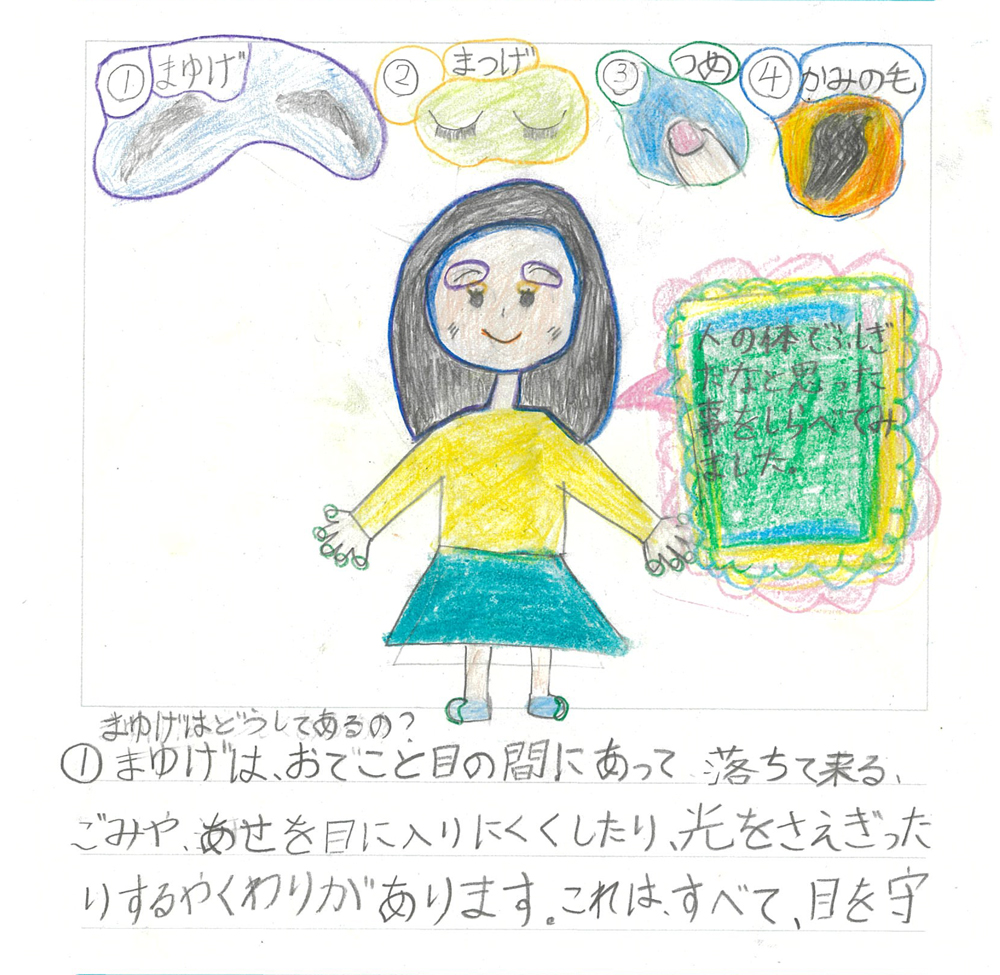 ① まゆげ
② まつげ
③ つめ
④ かみの毛
人の体でふしぎ
だなと思った
事をしらべてみ
ました。
まゆげはどうしてあるの？
① まゆげは、おでこと目の間にあって 落ちて来る、
ごみや、あせを目に入りにくくしたり、光をさえぎった
りするやくわりがあります。これは、すべて、目を守